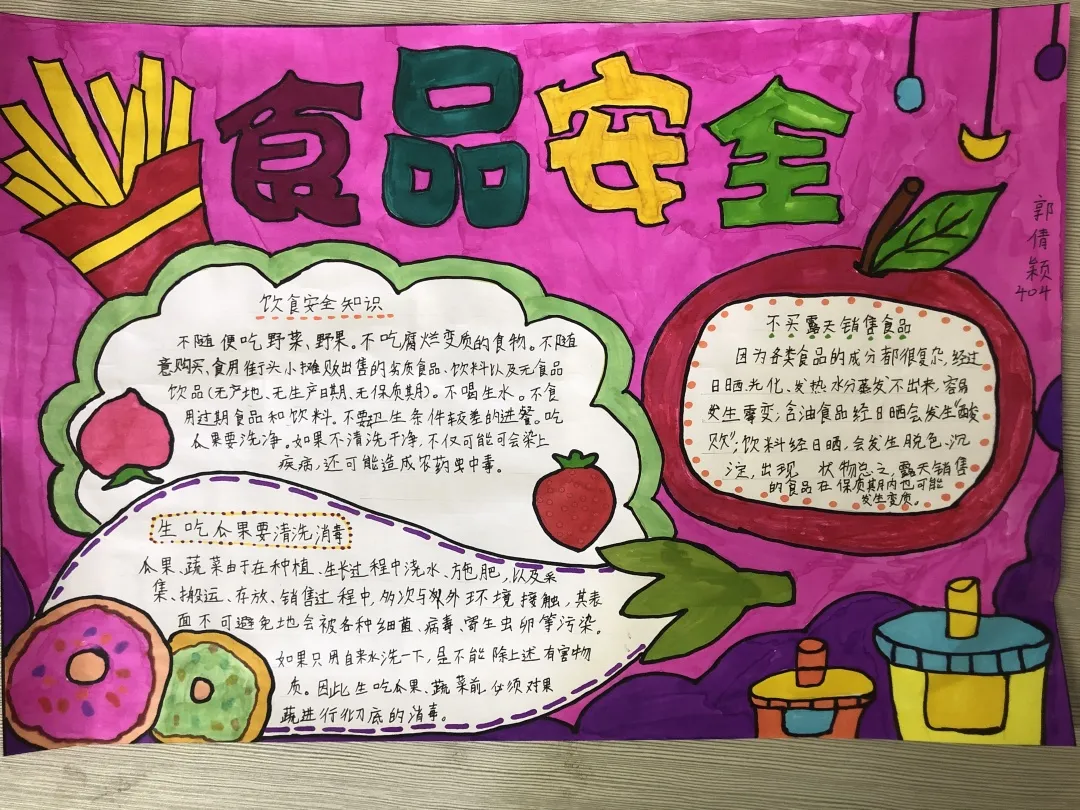 食品安全
郭倩颖
404
饮食安全知识
不随便吃野菜、野果。不吃腐烂变质的食物。不随
意购买、食用街头小摊贩出售的劣质食品、饮料以及无食品
饮品(无产地、无生产日期、无保质期)。不喝生水。不食
用过期食品和饮料。不要卫生条件较差的进餐。吃
瓜果要洗净。如果不清洗干净,不仅可能可会染上
疾病,还可能造成农药虫中毒。
不买露天销售食品
因为各类食品的成分都很复杂,经过
日晒、光化、发热水分蒸发不出来,容易
发生霉变;含油食品经日晒会发生"酸
败";饮料经日晒,会发生脱色、沉
淀,出现 状物总之,露天销售
的食品在保质期内也可能
发生变质。
生吃瓜果要清洗消毒
瓜果、蔬菜由于在种植、生长过程中浇水、施肥,以及采
集、搬运、存放、销售过程中,多次与外环境接触,其表
面不可避免地会被各种细菌、病毒、寄生虫卵等污染。
如果只用自来水洗一下,是不能除上述有害物
质。因此生吃瓜果、蔬菜前必须对果
蔬进行彻底的消毒。